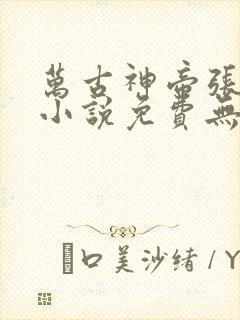 萬古神帝張
小說免費無
口美沙绪 / Y